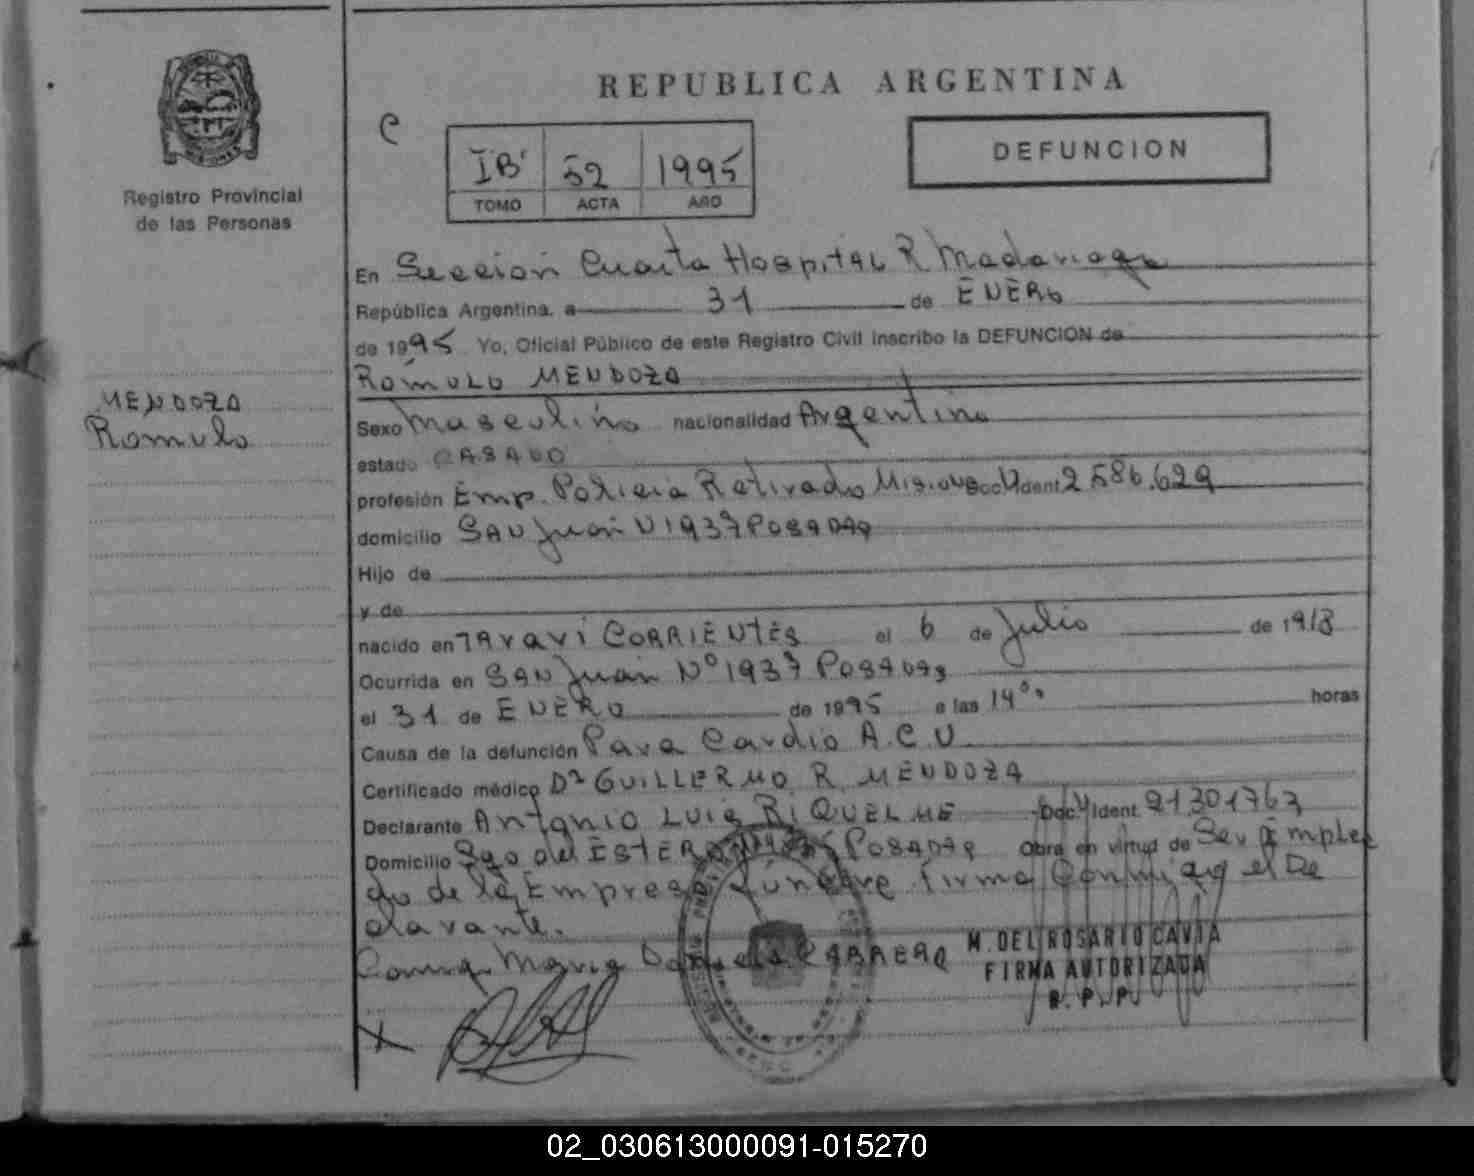 REPUBLICA ARGENTINA
DEFUNCION
IB' 52 1995
TOMO ACTA AÑO
Registro Provincial
de las Personas
En Seccion Cuarta Hospital R Madariaga
República Argentina, a 31 de ENERO
de 1995 Yo, Oficial Público de este Registro Civil inscribo la DEFUNCION de
ROMULO MENDOZA
MENDOZA
Romulo
Sexo Masculino nacionalidad Argentino
estado CASADO
profesión Emp. Policia Retirado Doc Ident 2586.629
domicilio SAN Juan N 1937 POSADAS
Hijo de
y de
nacido en CORRIENTES el 6 de Julio de 1918
Ocurrida en SAN Juan Nº 1937 POSADAS
el 31 de ENERO de 1995 a las 14 horas
Causa de la defunción Para Cardio A.C.V.
Certificado médico Dr GUILLERMO R. MENDOZA
Declarante Antonio Luis RIQUELME Doc Ident. 21301763
Domicilio Sgo del ESTERO POSADAS Obra en virtud de Ser Emplea
do de la Empresa Fúnebre. Firma Conmigo el De
clarante.
Maria CABRERA
M. DEL ROSARIO CAVIA
FIRMA AUTORIZADA
R. P. P.
02_030613000091-015270